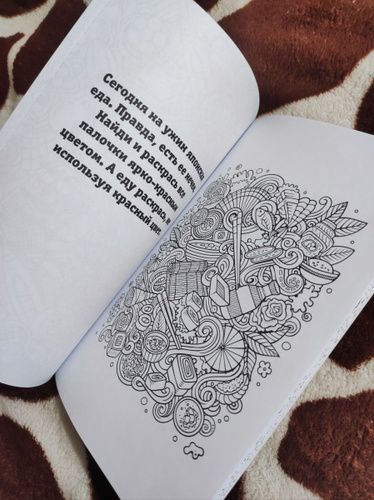 Сегодня на ужин японская
еда. Правда, есть ее нечем
Найди и раскрась все
палочки ярко-красным
цветом. А еду раскрась, не
используя красный цвет.